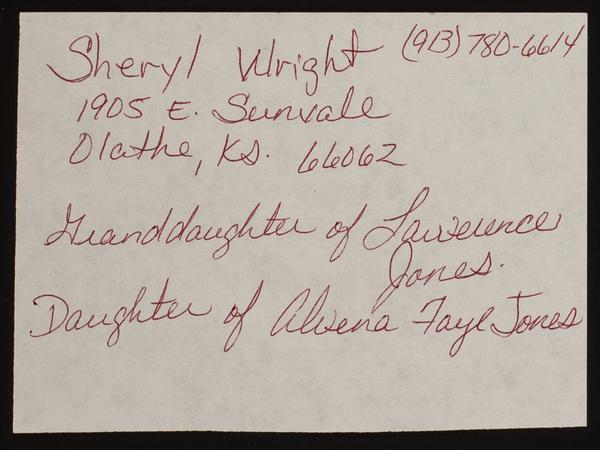 Sheryl Wright (913) 780-6614
1905 E. Sunvale
Olathe, KS. 66062
Granddaughter of Lawrence
Jones.
Daughter of Alvena Faye Jones